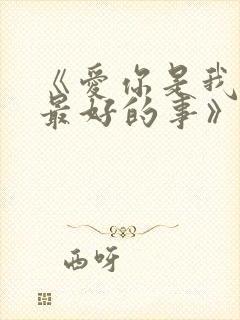 《爱你是我
最好的事》
西呀